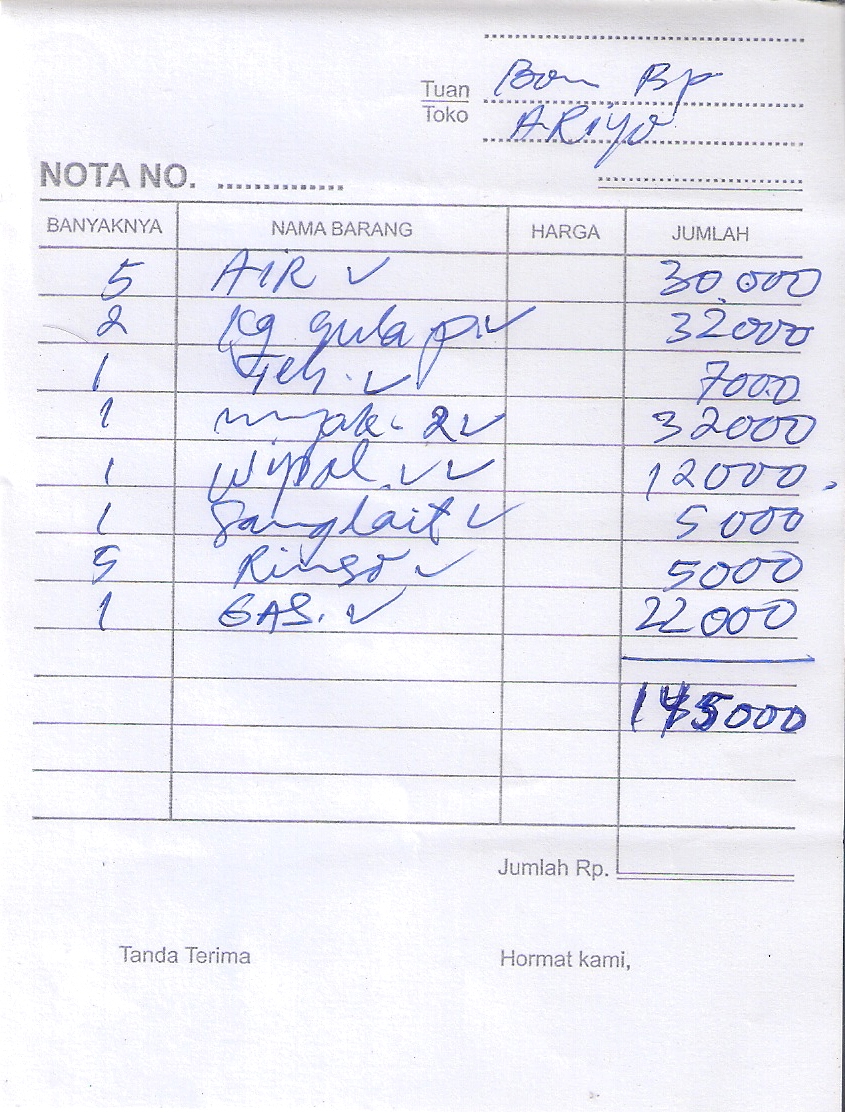 Tuan Bon Bp
Toko ARiyo
NOTA NO.
BANYAKNYA NAMA BARANG HARGA JUMLAH
5 AIR ✓ 30.000
2 kg gula p. ✓ 32000
1 Teh. ✓ 7000
1 minyak 2 ✓ 32000
1 Wipol ✓ ✓ 12000
1 Sanglait ✓ 5000
5 Rinso ✓ 5000
1 GAS. ✓ 22000
145000
Jumlah Rp.
Tanda Terima Hormat kami,